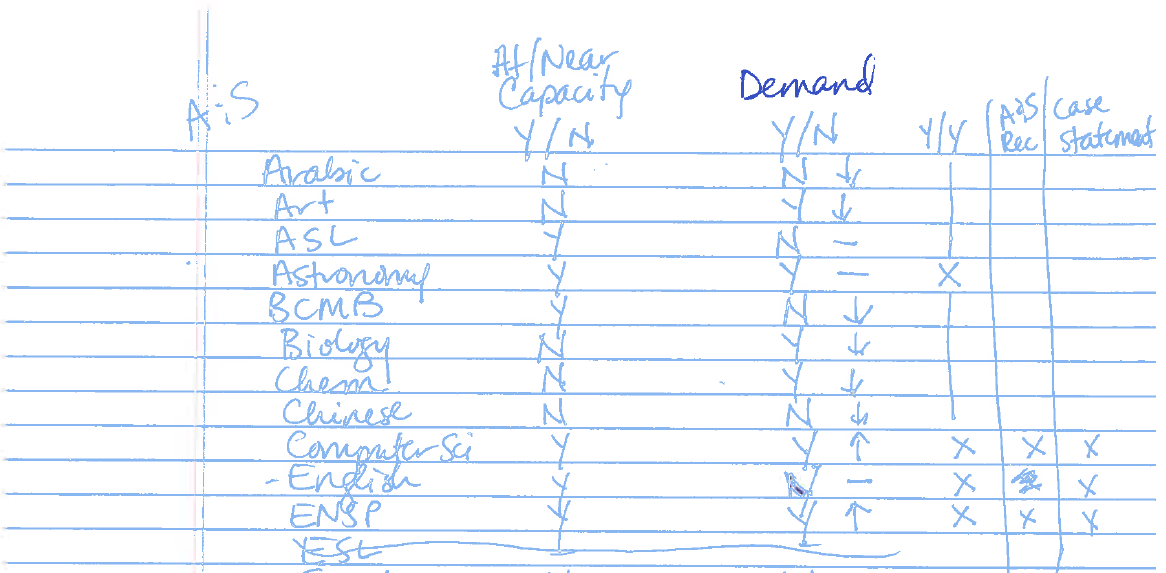 At/Near
Capacity Demand
A:S Y/N Y/N Y/Y A:S Rec Case Statement
Arabic N N ↓
Art N Y ↓
ASL Y N —
Astronomy Y Y — X
BCMB Y N ↓
Biology N Y ↓
Chem N Y ↓
Chinese N N ↓
Computer Sci Y Y ↑ X X X
- English Y Y — X X
ENSP Y Y ↑ X X X
YESL